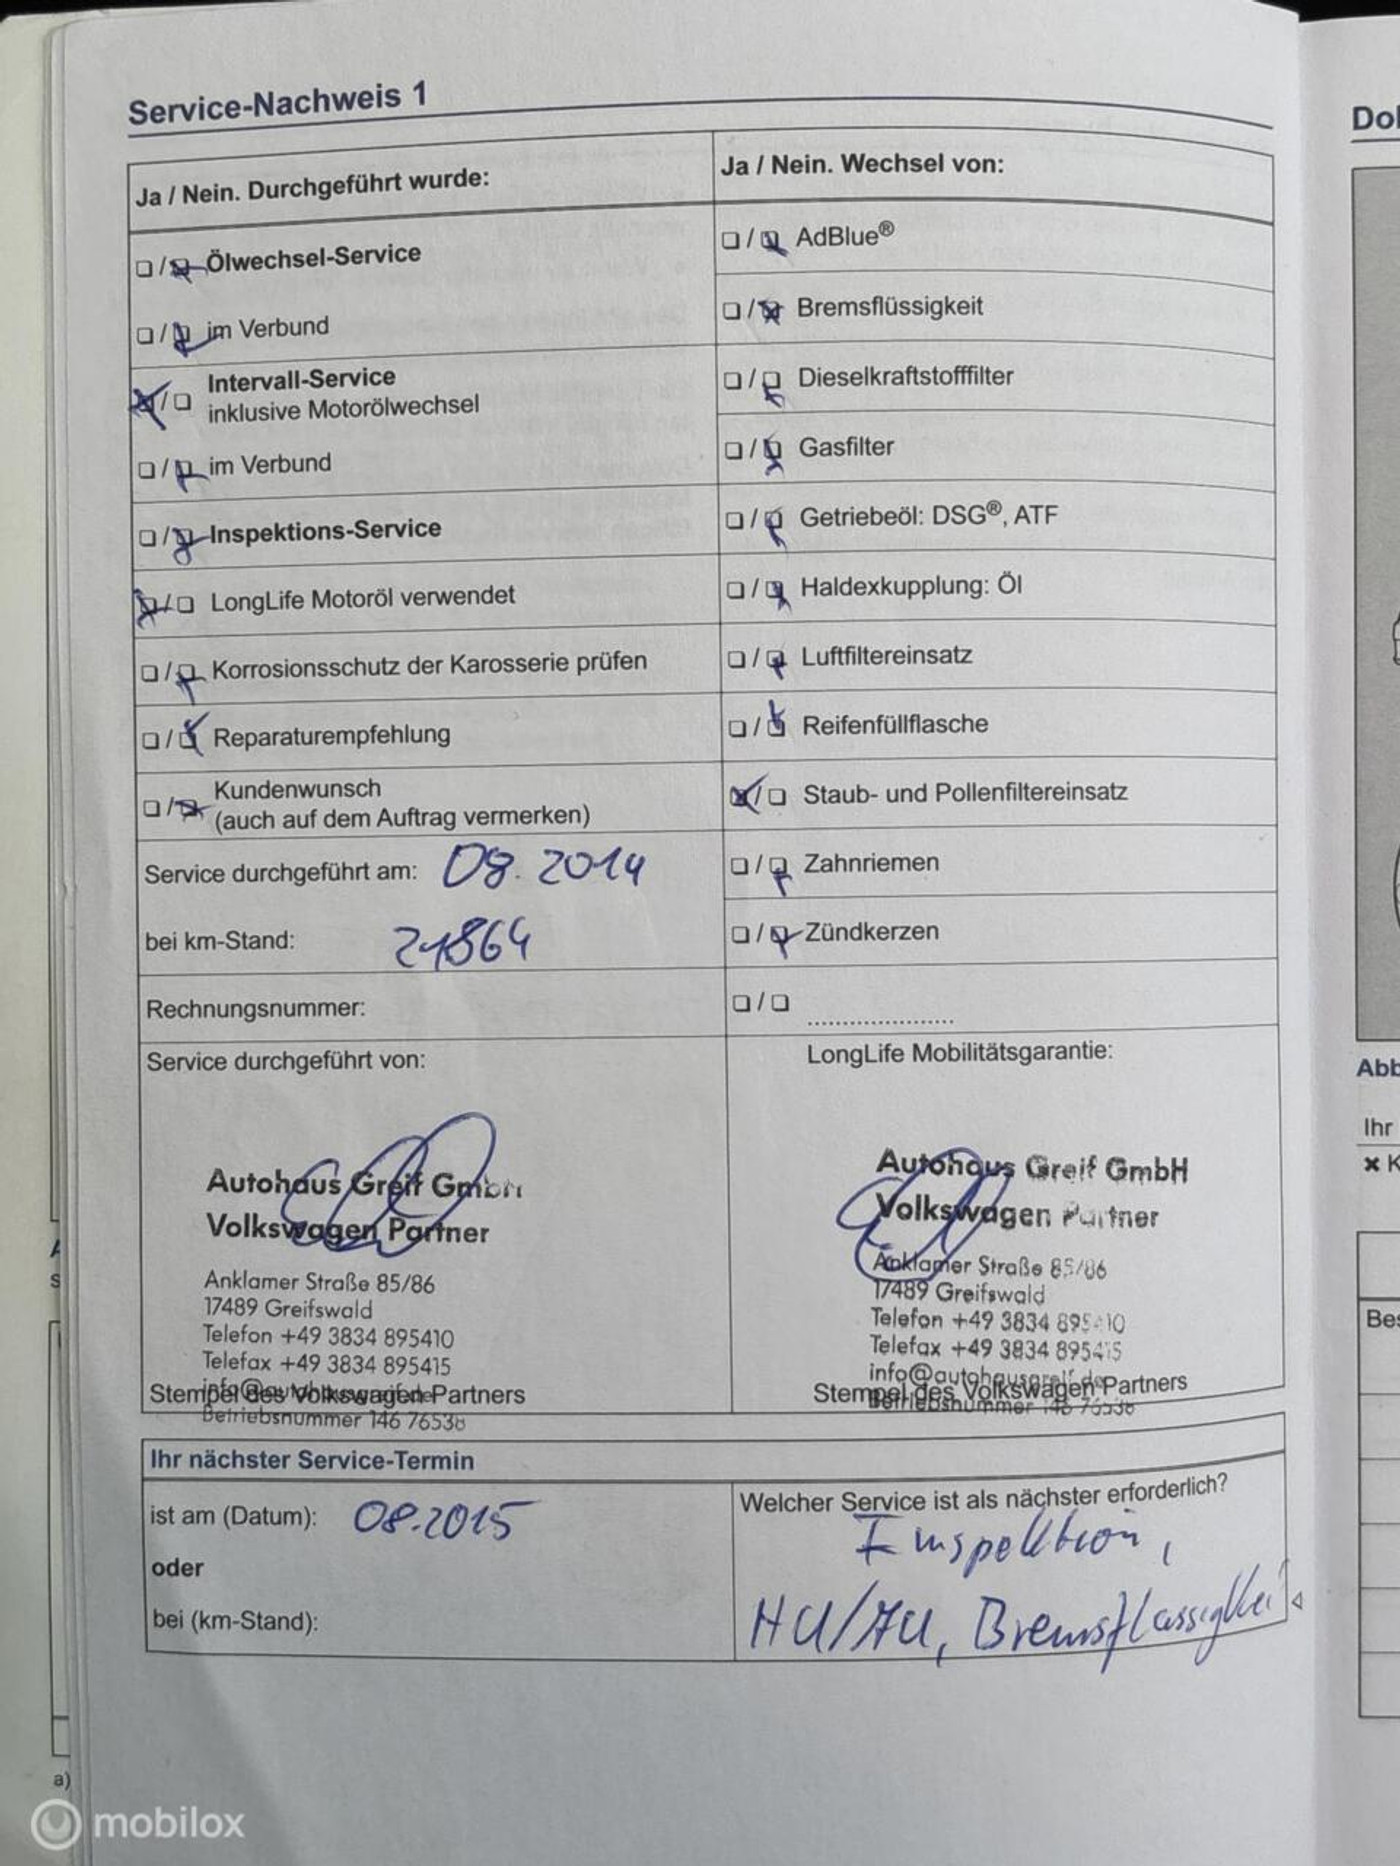 Service-Nachweis 1
Ja / Nein. Durchgeführt wurde:
☐ / ☒ Ölwechsel-Service
☐ / ☒ im Verbund
☒ / ☐ Intervall-Service
inklusive Motorölwechsel
☐ / ☒ im Verbund
☐ / ☒ Inspektions-Service
☒ / ☐ LongLife Motoröl verwendet
☐ / ☒ Korrosionsschutz der Karosserie prüfen
☐ / ☒ Reparaturempfehlung
☐ / ☒ Kundenwunsch
(auch auf dem Auftrag vermerken)
Service durchgeführt am: 08.2014
bei km-Stand: 21864
Rechnungsnummer:
Ja / Nein. Wechsel von:
☐ / ☒ AdBlue®
☐ / ☒ Bremsflüssigkeit
☐ / ☒ Dieselkraftstofffilter
☐ / ☒ Gasfilter
☐ / ☒ Getriebeöl: DSG®, ATF
☐ / ☒ Haldexkupplung: Öl
☐ / ☒ Luftfiltereinsatz
☐ / ☒ Reifenfüllflasche
☒ / ☐ Staub- und Pollenfiltereinsatz
☐ / ☒ Zahnriemen
☐ / ☒ Zündkerzen
☐ / ☐ .....................
Service durchgeführt von:
Autohaus Greif GmbH
Volkswagen Partner
Anklamer Straße 85/86
17489 Greifswald
Telefon +49 3834 895410
Telefax +49 3834 895415
info@autohausgreif.de
Stempel des Volkswagen Partners
Betriebsnummer 146 76538
LongLife Mobilitätsgarantie:
Autohaus Greif GmbH
Volkswagen Partner
Anklamer Straße 85/86
17489 Greifswald
Telefon +49 3834 895410
Telefax +49 3834 895415
info@autohausgreif.de
Stempel des Volkswagen Partners
Betriebsnummer 146 76538
Ihr nächster Service-Termin
ist am (Datum): 08.2015
oder
bei (km-Stand):
Welcher Service ist als nächster erforderlich?
Inspektion,
HU/AU, Bremsflüssigkei
Dol
Abb
Ihr
✖ K
Bes
a)
mobilox